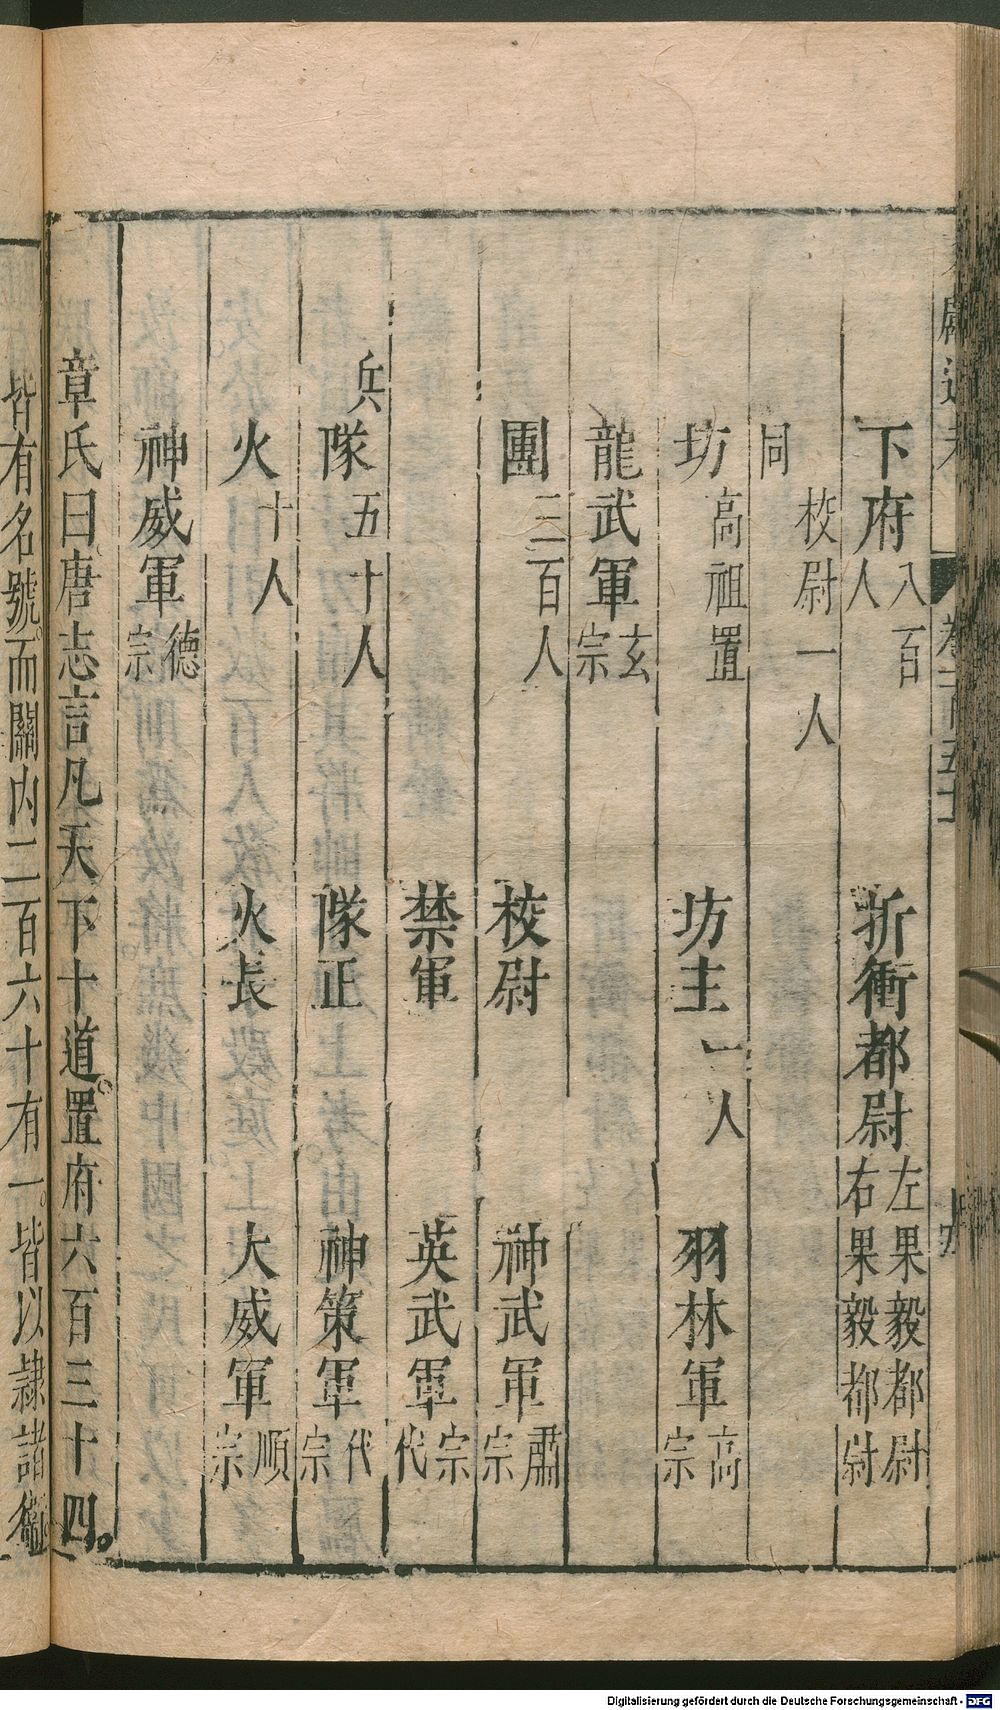 下府八百人 折衝都尉左果毅都尉右果毅都尉
同校尉一人
坊高祖置 坊主一人 羽林軍高宗
龍武軍玄宗
團三百人 校尉 神武軍肅宗
禁軍 英武軍宗代
兵隊五十人 隊正 神策軍代宗
火十人 火長 大威軍順宗
神威軍德宗
章氏曰唐志言凡天下十道置府六百三十四。
皆有名號。而關內二百六十有一。皆以隷諸衛
Digitalisierung gefördert durch die Deutsche Forschungsgemeinschaft - DFG